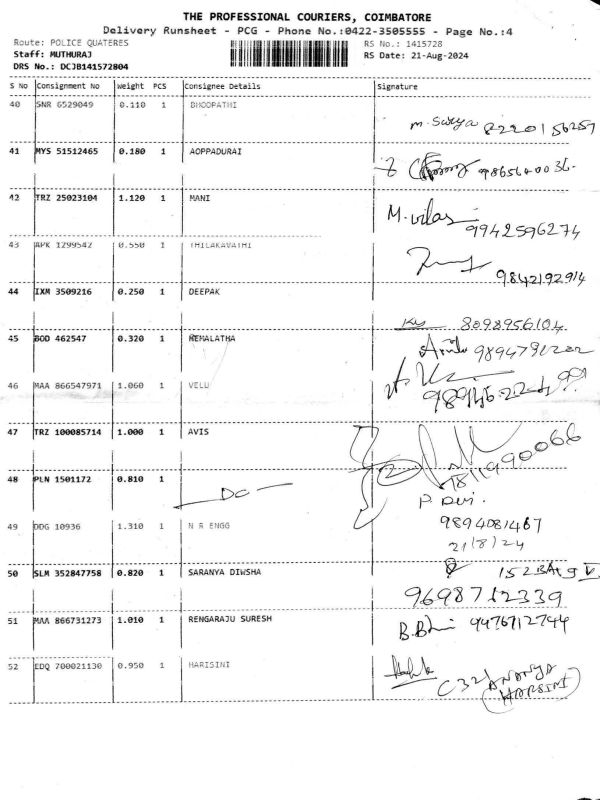 THE PROFESSIONAL COURIERS, COIMBATORE
Delivery Runsheet - PCG - Phone No.:0422-3505555 - Page No.:4
Route: POLICE QUATERES RS No.: 1415728
Staff: MUTHURAJ RS Date: 21-Aug-2024
DRS No.: DCJB141572804
S No Consignment No Weight PCS Consignee Details Signature
40 SNR 6529049 0.110 1 BHOOPATHI
M. Surya 8220156257
41 MYS 51512465 0.180 1 AOPPADURAI
9865640036.
42 TRZ 25023104 1.120 1 MANI
M. vilas
9942596274
43 APK 1299542 0.550 1 THILAKAVATHI
9842192914
44 IXM 3509216 0.250 1 DEEPAK
8098956104
45 BOD 462547 0.320 1 HEMALATHA
46 MAA 866547971 1.060 1 VELU
47 TRZ 100085714 1.000 1 AVIS
7811990066
48 PLN 1501172 0.810 1
DC
P. Devi.
49 DDG 10936 1.310 1 N R ENGG
9894081467
21/8/24
50 SLM 352847758 0.820 1 SARANYA DIWSHA
9698712339
51 MAA 866731273 1.010 1 RENGARAJU SURESH
9476712744
52 EDQ 700021130 0.950 1 HARISINI
C 321 ANANYA
(HARSINI)